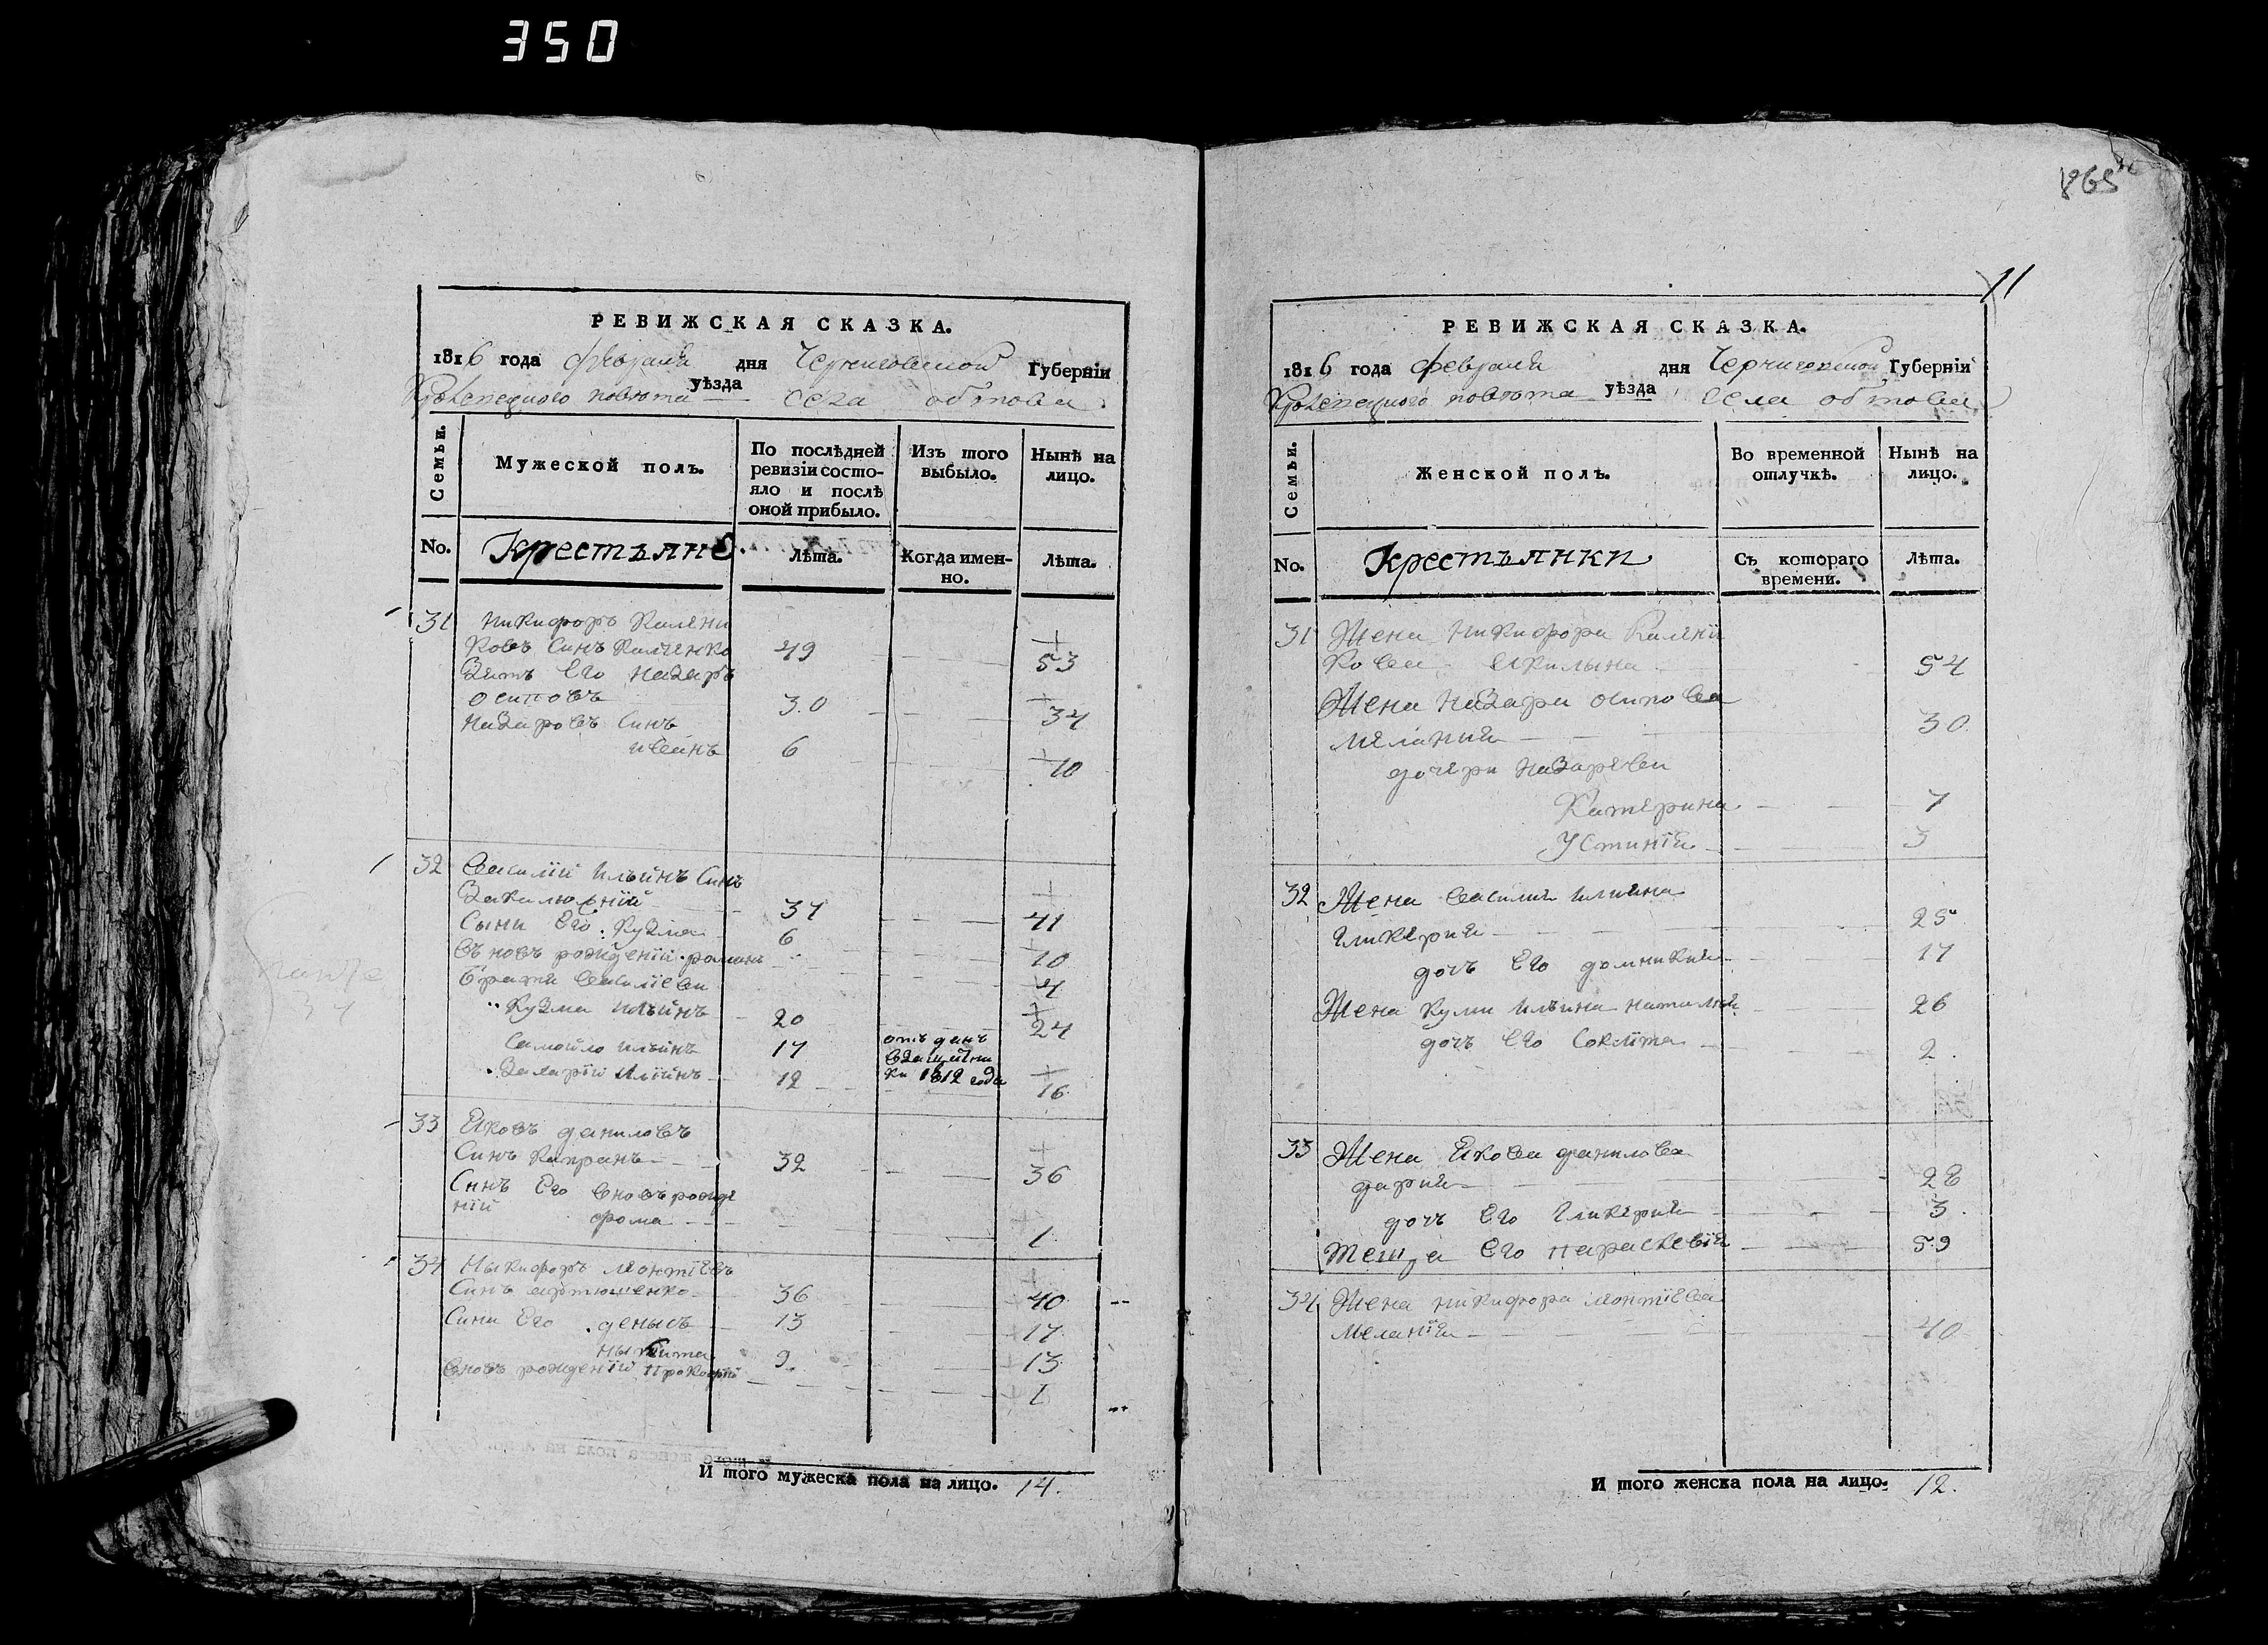 350
865
11
РЕВИЖСКАЯ СКАЗКА.
1816 года февраля дня Черниговской Губерніи
Кролевецкого повѣта уѣзда села обтова
Семьи.
Мужеской полъ.
По послѣдней ревизіи состо-
яло и послѣ
оной прибыло.
Изъ того
выбыло.
Нынѣ на
лицо.
No.
Крестьяне.
Лѣта.
Когда имен-
но.
Лѣта.
31 Никифоръ Калени
ковъ Синъ 49 53
Зять Его Назаръ
осиповъ 30 34
Назаровъ Синъ
иванъ 6 10
32 Василій Ильинъ Синъ
37 41
Сыни Его Кузма 6 10
въновъ рожденій романъ 4
Брати Василіеви
Кузма Ильинъ 20 24
Самойло Ильинъ 17 отъданъ
12 ки 1812 года 16
33 Яковъ даниловъ
Синъ Капранъ 32 36
Синъ Его вновъ рожде
ній фома 1
34 Ныкифоръ леонтіевъ
Синъ артюшенко 36 40
Сини Его денысъ 13 17
ныкита 9 13
вновъ рожденій Прокофій 1
И того мужеска пола на лицо. 14.
РЕВИЖСКАЯ СКАЗКА.
1816 года февраля дня Черниговской Губерніи
Кролевецкого повѣта уѣзда села обтова
Семьи.
Женской полъ.
Во временной
отлучкѣ.
Нынѣ на
лицо.
No.
Крестьянки
Съ котораго
времени.
Лѣта.
31 Жена Никифора Калени
кова Акилына 54
Жена Назара осипова
мелания 30
дочери Назаревы
Катерина 7
Устинія 3
32 Жена Василия Илиина
Гликерия 25
дочъ Его домникия 17
Жена Кузми Ильина наталия 26
дочъ Его 2
33 Жена Якова данилова
дария 28
дочъ Его Гликерия 3
Теща Его параскевія 59
34 Жена никифора леонтіева
Меланія 40
И того женска пола на лицо. 12.